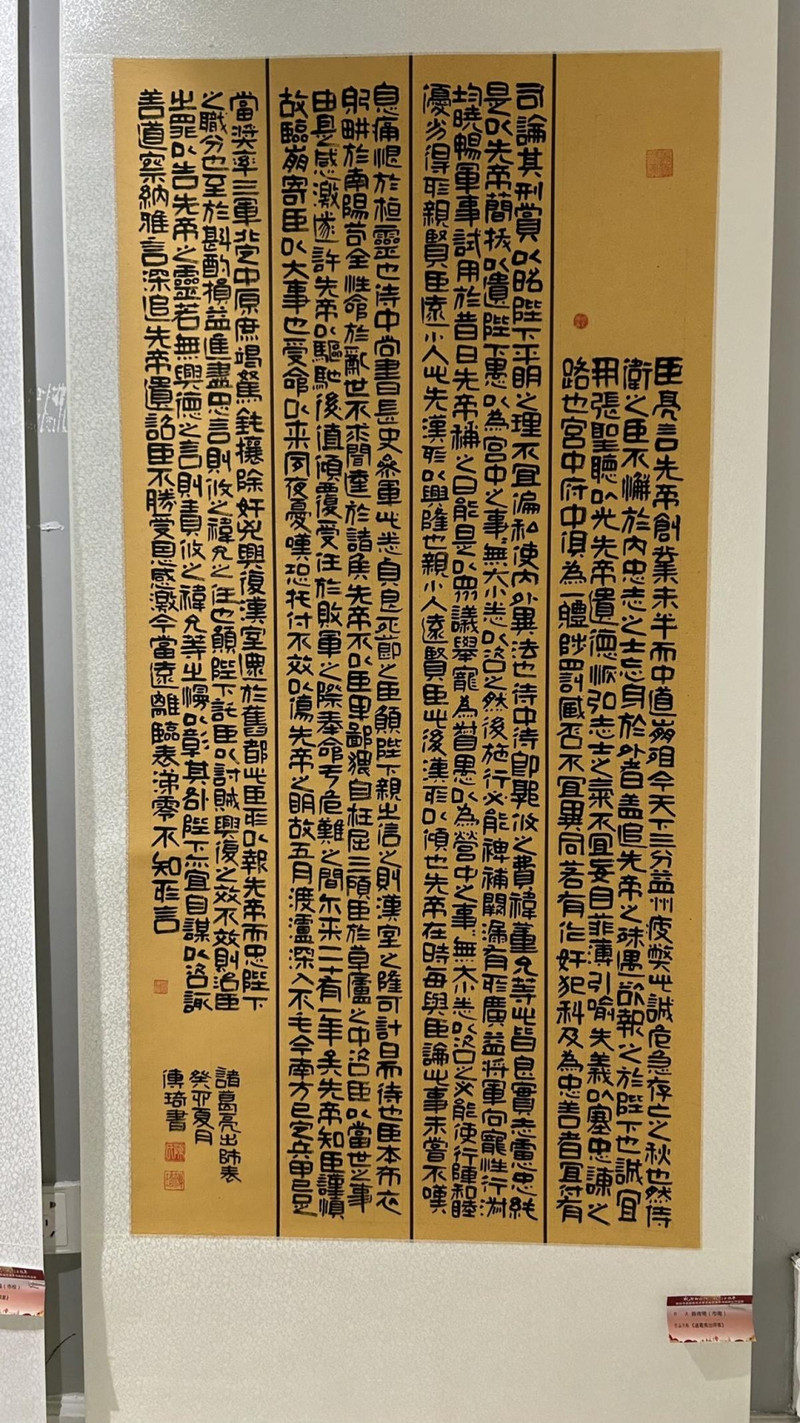 臣亮言先帝創業未半而中道崩殂今天下三分益州疲弊此誠危急存亡之秋也然侍
衛之臣不懈於內忠志之士忘身於外者盖追先帝之殊遇欲報之於陛下也誠宜
開張聖聽以光先帝遺德恢弘志士之氣不宜妄自菲薄引喻失義以塞忠諫之
路也宮中府中俱為一體陟罰臧否不宜異同若有作奸犯科及為忠善者宜付有
司論其刑賞以昭陛下平明之理不宜偏私使內外異法也侍中侍郎郭攸之費禕董允等此皆良實志慮忠純
是以先帝簡拔以遺陛下愚以為宮中之事無大小悉以咨之然後施行必能裨補闕漏有所廣益將軍向寵性行淑
均曉暢軍事試用於昔日先帝稱之曰能是以眾議舉寵為督愚以為營中之事無大小悉以咨之必能使行陣和睦
優劣得所親賢臣遠小人此先漢所以興隆也親小人遠賢臣此後漢所以傾也先帝在時每與臣論此事未嘗不嘆
息痛恨於桓靈也侍中尚書長史參軍此悉貞良死節之臣願陛下親之信之則漢室之隆可計日而待也臣本布衣
躬耕於南陽苟全性命於亂世不求聞達於諸侯先帝不以臣卑鄙猥自枉屈三顧臣於草廬之中咨臣以當世之事
由是感激遂許先帝以驅馳後值傾覆受任於敗軍之際奉命于危難之間尔來二十有一年矣先帝知臣謹慎
故臨崩寄臣以大事也受命以来夙夜憂嘆恐托付不效以傷先帝之明故五月渡瀘深入不毛今南方已定兵甲已足
當獎率三軍北定中原庶竭駑鈍攘除奸兇興復漢室還於舊都此臣所以報先帝而忠陛下
之職分也至於斟酌損益進盡忠言則攸之禕允之任也願陛下託臣以討賊興復之效不效則治臣
之罪以告先帝之靈若無興德之言則責攸之禕允等之慢以彰其咎陛下亦宜自謀以咨諏
善道察納雅言深追先帝遺詔臣不勝受恩感激今當遠離臨表涕零不知所言
諸葛亮出師表
癸卯夏月
傳琦書